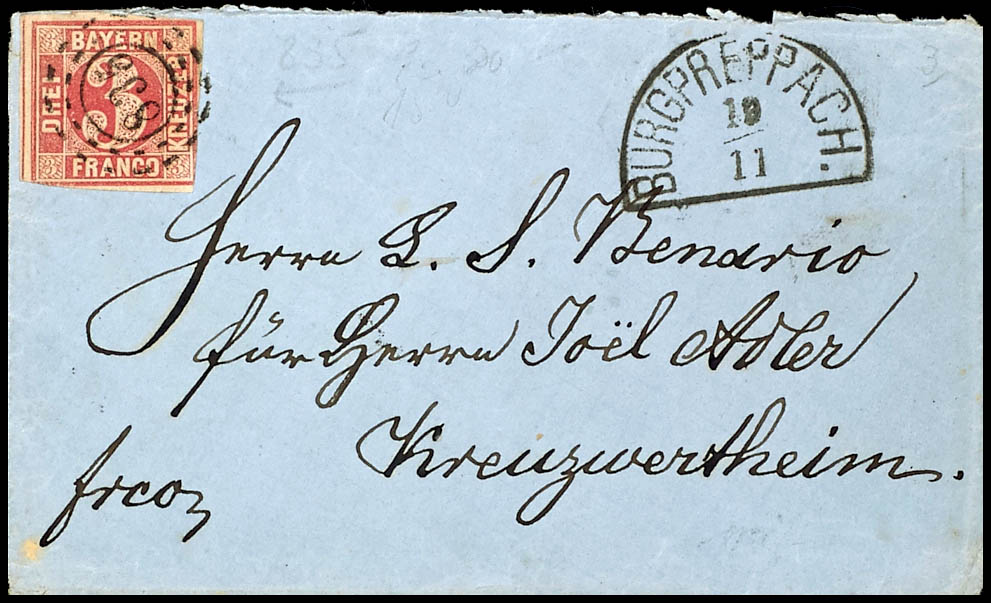 BAYERN
DREI
3
KREUZER
FRANCO
835
835
BURGPREPPACH.
19
11
Herrn L. S. Benario
für Herrn Joël Adler
Kreuzwertheim.
frco